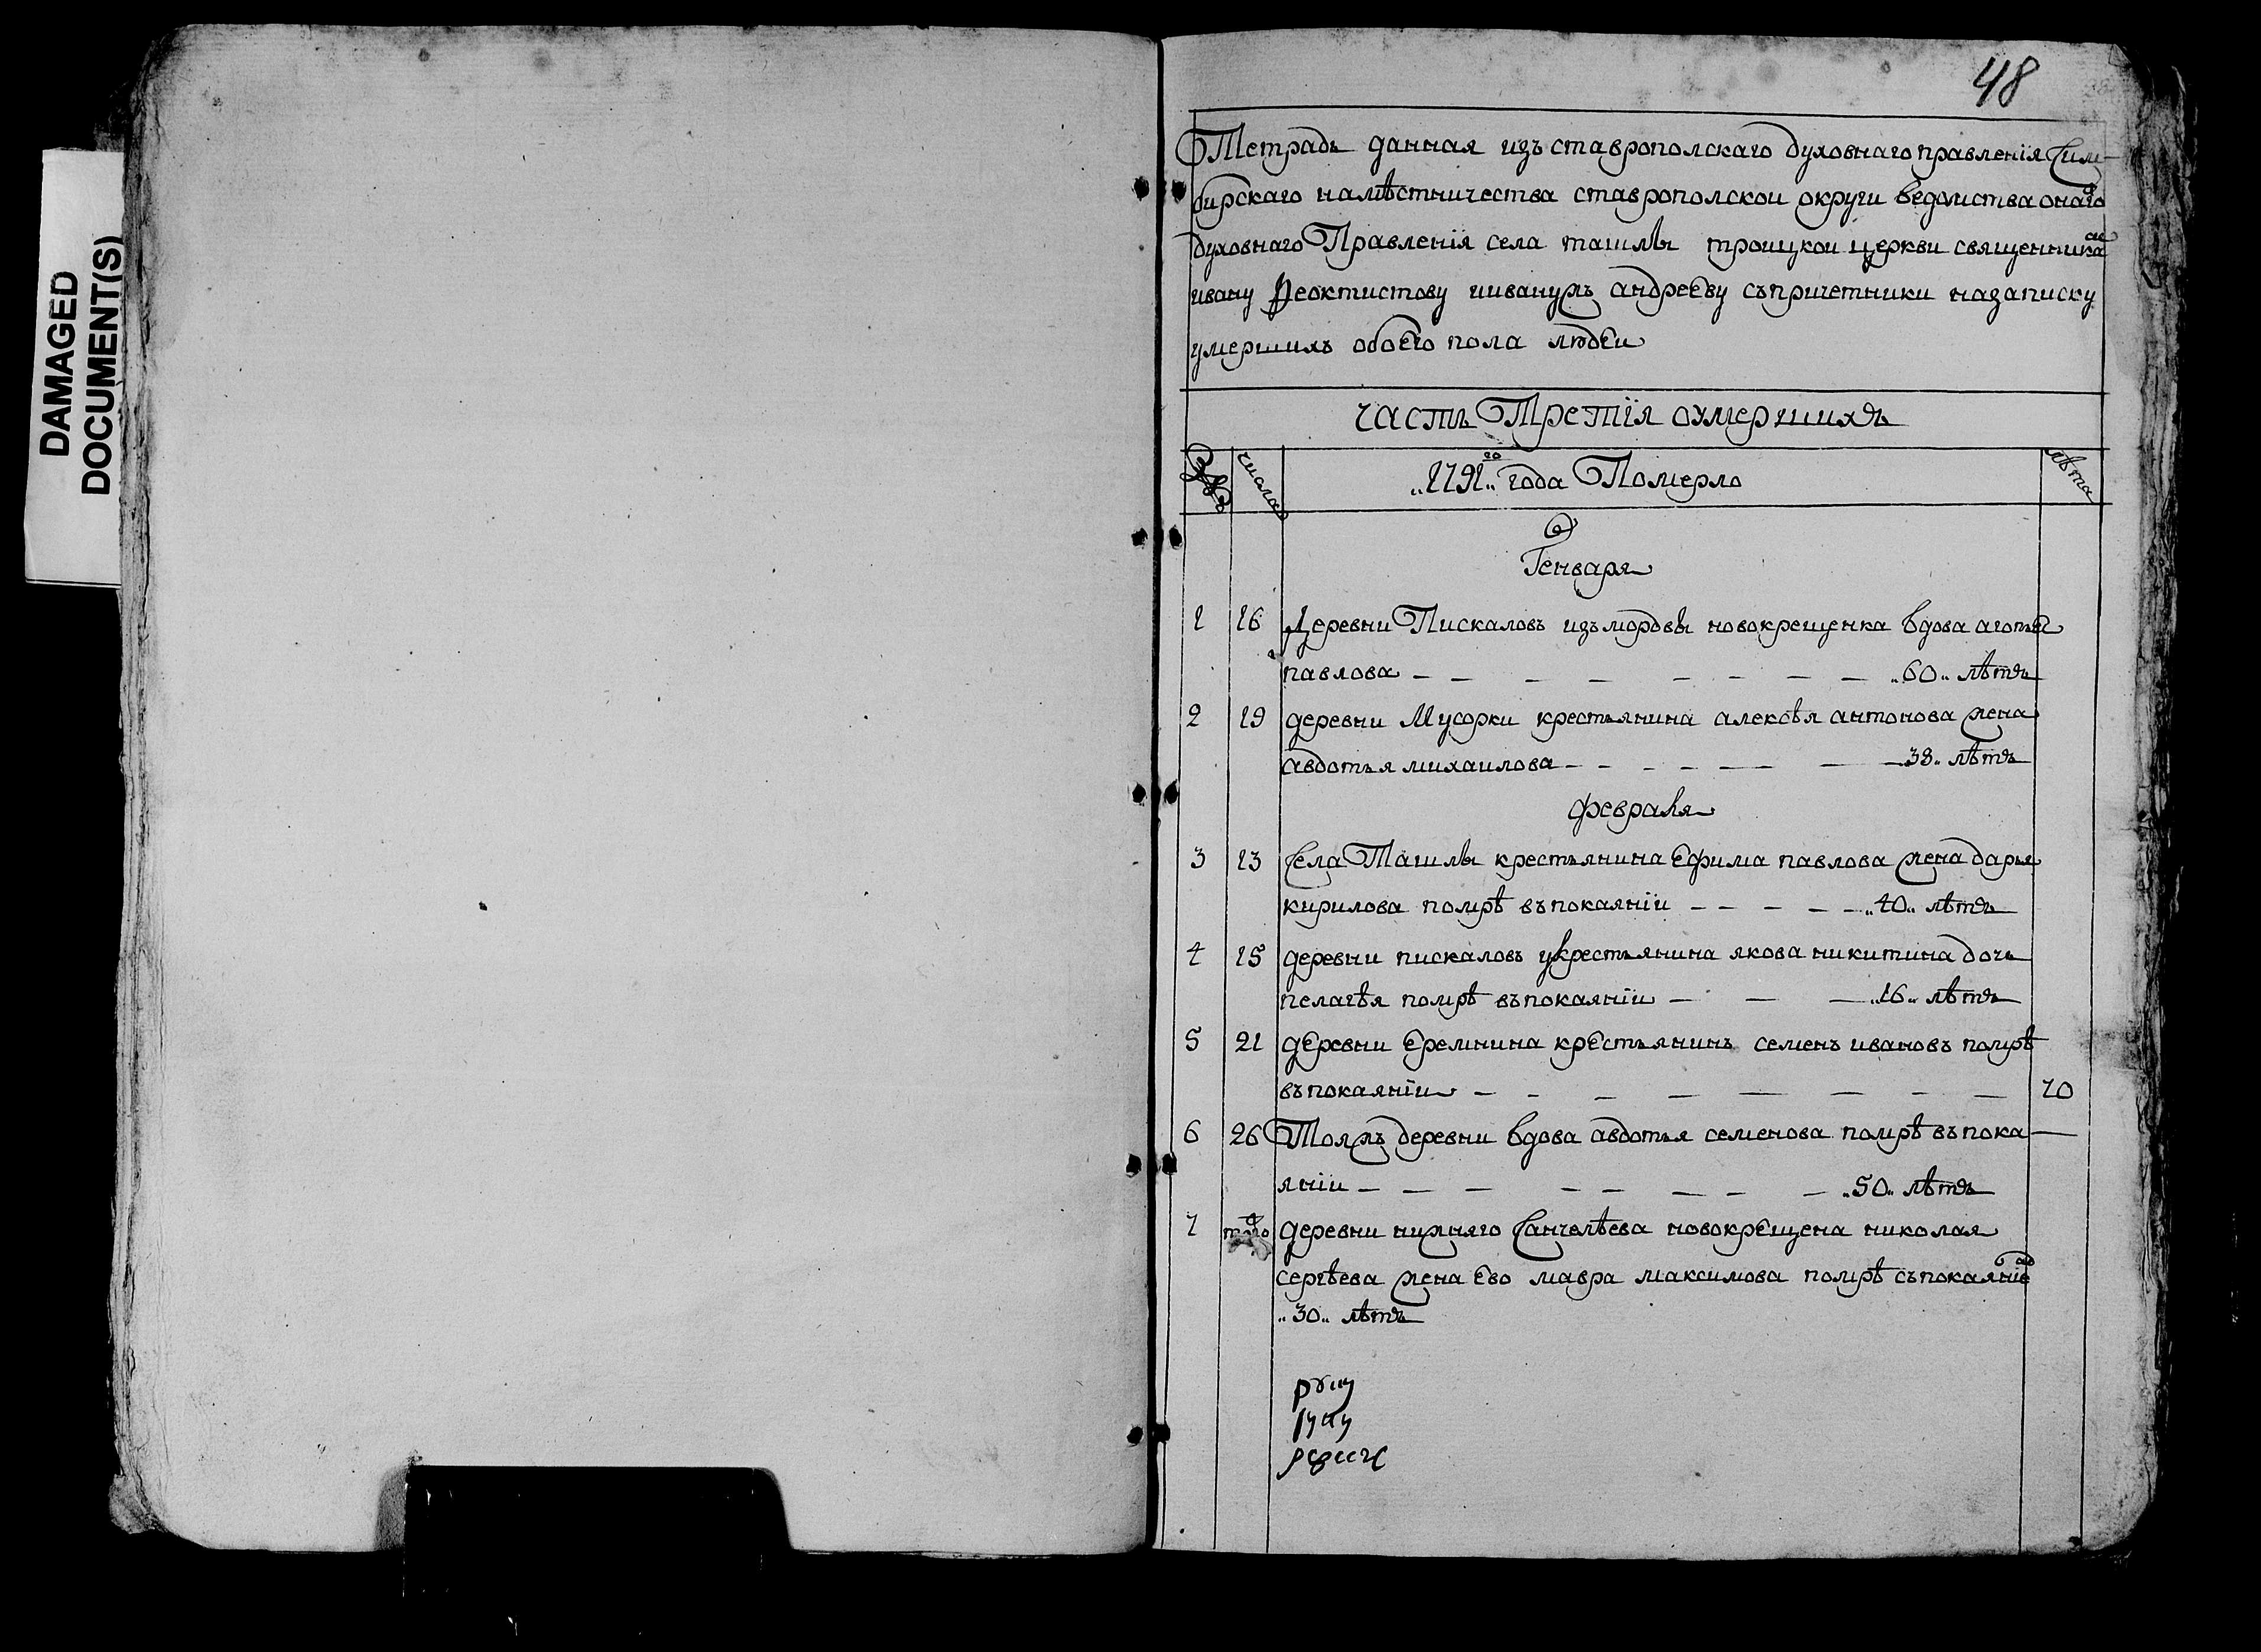 DAMAGED
DOCUMENT(S)
48
Тетрадь данная изъ ставрополскаго духовнаго правленія Сим-
бирскаго намѣстничества ставрополской округи ведомства онаго
духовнаго Правленія села ташлы троицкои церкви священника
ивану Феоктистову ииванужъ андрееву съпричетники назаписку
умершихъ обоего пола людеи
часть Третія оумершихъ
числа
1791го года Померло
лѣта
Генваря
1 16 Деревни Пискаловъ изъмордвы новокрещенка вдова
павлова 60 лѣтъ
2 19 деревни Мусорки крестьянина алексѣя антонова жена
авдотья михаилова 38 лѣтъ
февраля
3 13 Села Ташлы крестьянина Ефима павлова жена дарья
кирилова помрѣ въпокаяніи 40 лѣтъ
4 15 деревни пискаловъ укрестьянина якова никитина дочь
пелагѣя помрѣ въпокаяніи 16 лѣтъ
5 21 деревни еремкина крестьянинъ семенъ ивановъ помрѣ
въпокаяніи 70
6 26 Тояжъ деревни вдова авдотья семенова помрѣ въпока
яніи 50 лѣтъ
7 того деревни нижняго Санчелѣева новокрещена николая
сергѣева жена ево мавра максимова помрѣ съпокаяніе
30 лѣтъ